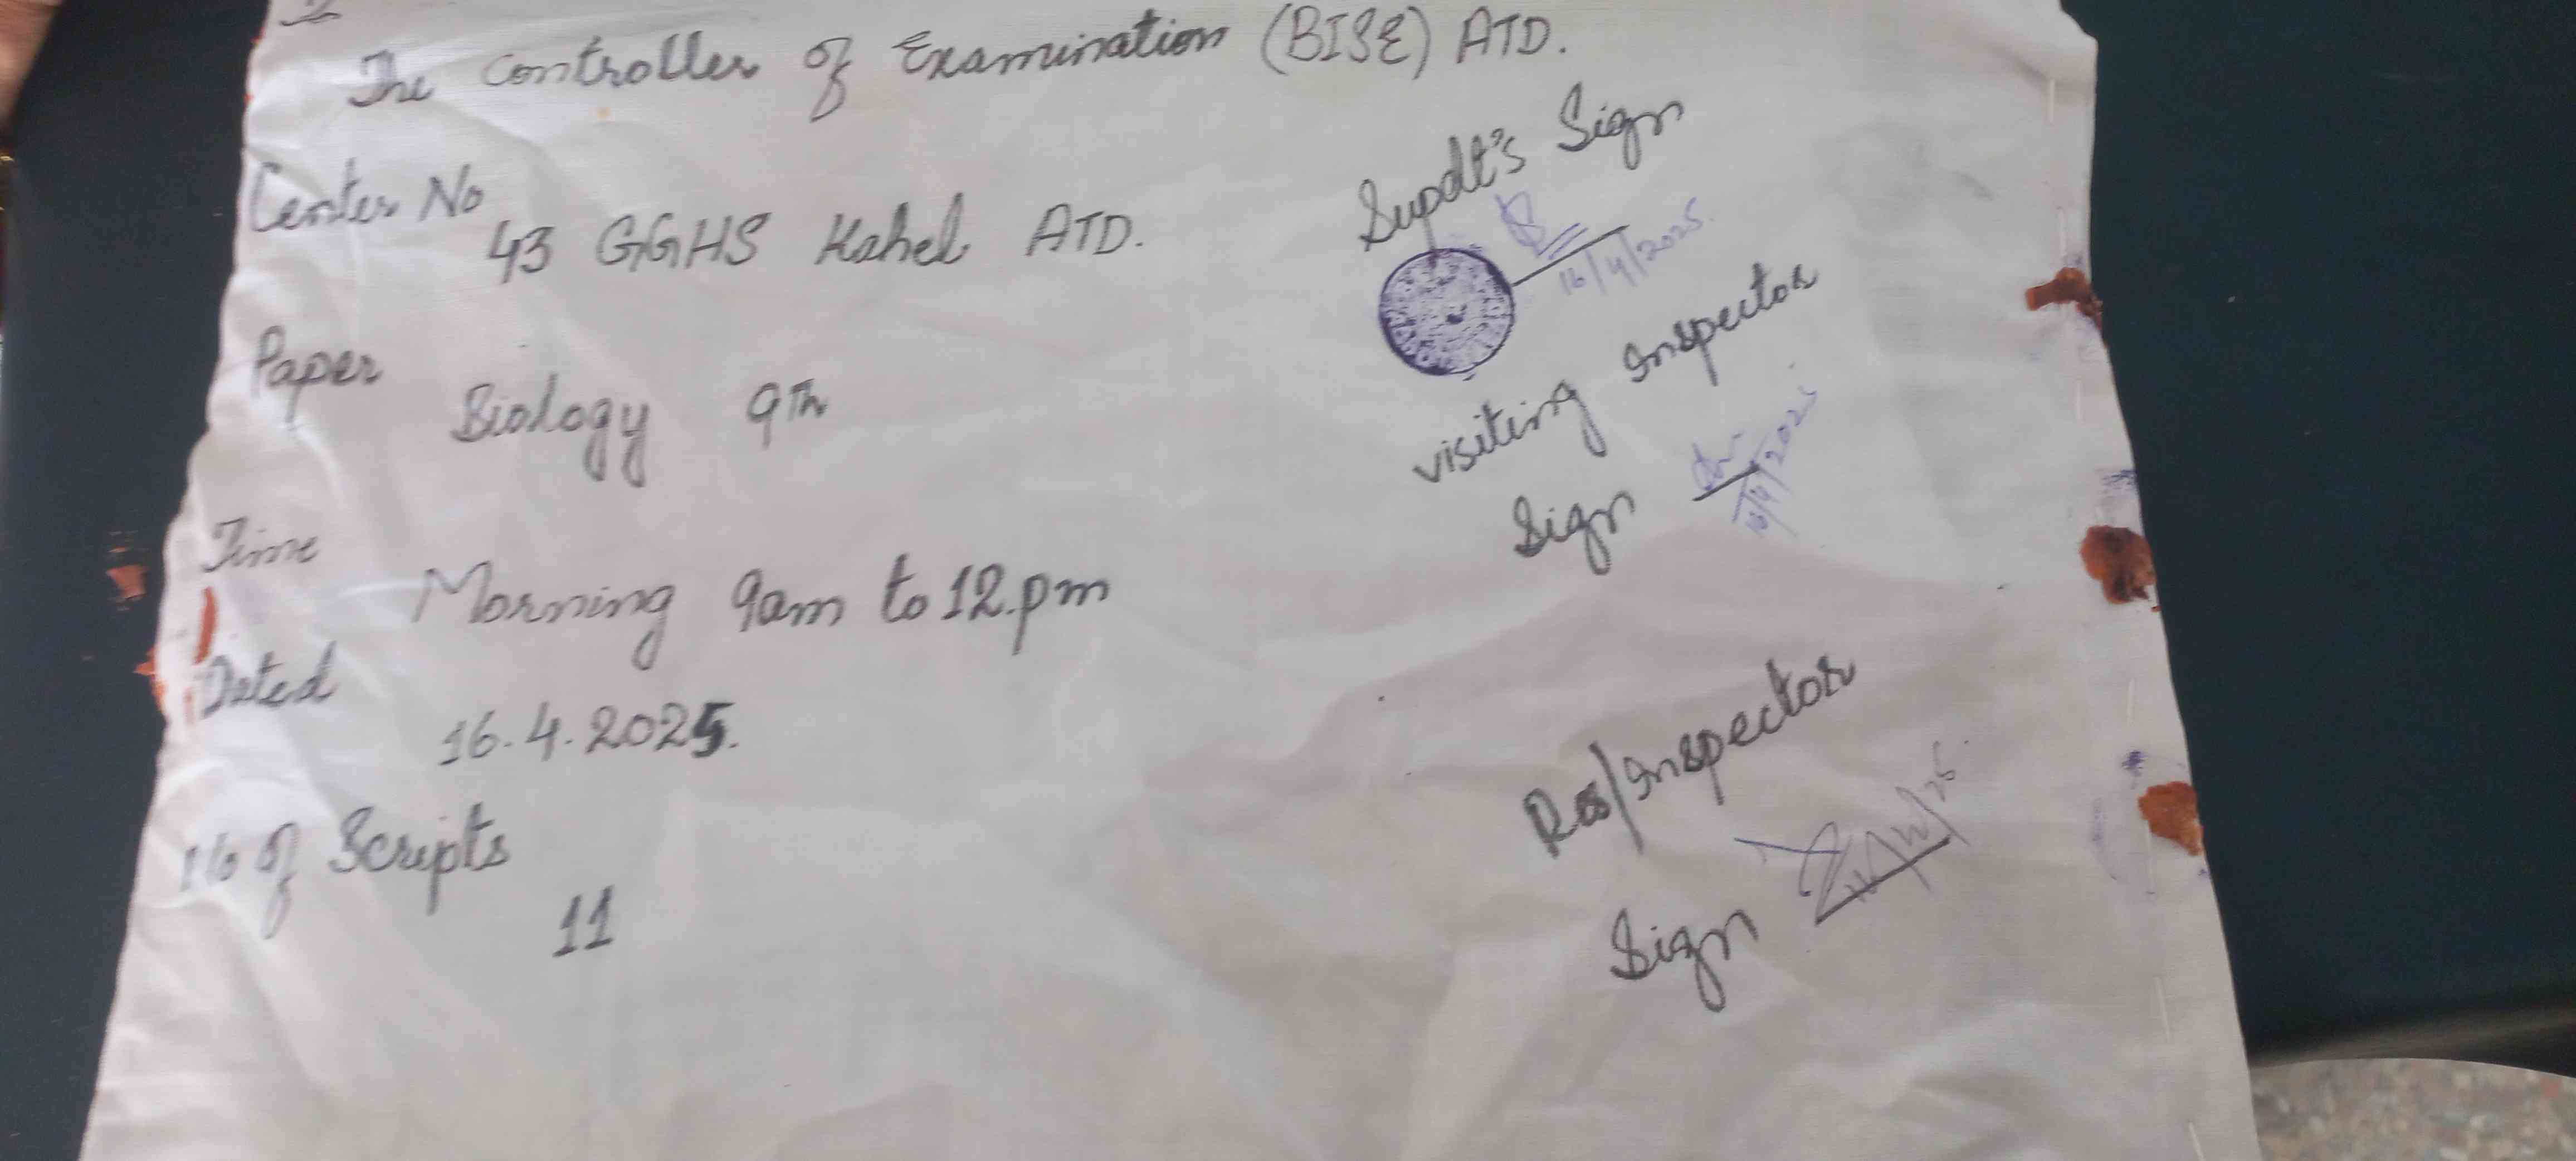 The Controller of Examination (BISE) ATD.
Center No
43 GGHS Kahel ATD.
Paper
Biology 9Th
Time
Morning 9am to 12.pm
Dated
16.4.2025.
No of Scripts
11
Supdt's Sign
16/4/2025.
visiting Inspector
Sign
16/4/2025
Res/Inspector
Sign